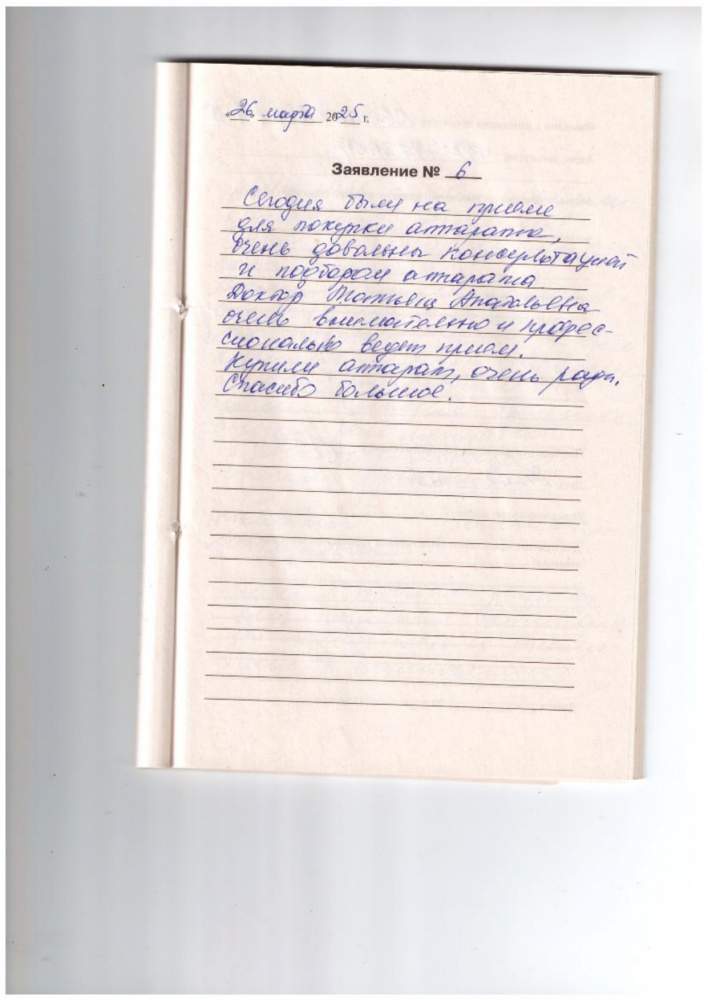 26 марта 2025 г.
Заявление № 6
Сегодня были на приеме
для покупки аппарата,
очень довольны консультацией
и подбором аппарата.
Доктор Татьяна Анатольевна
очень внимательно и профес-
сионально ведет прием.
Купили аппарат, очень рады.
Спасибо большое.